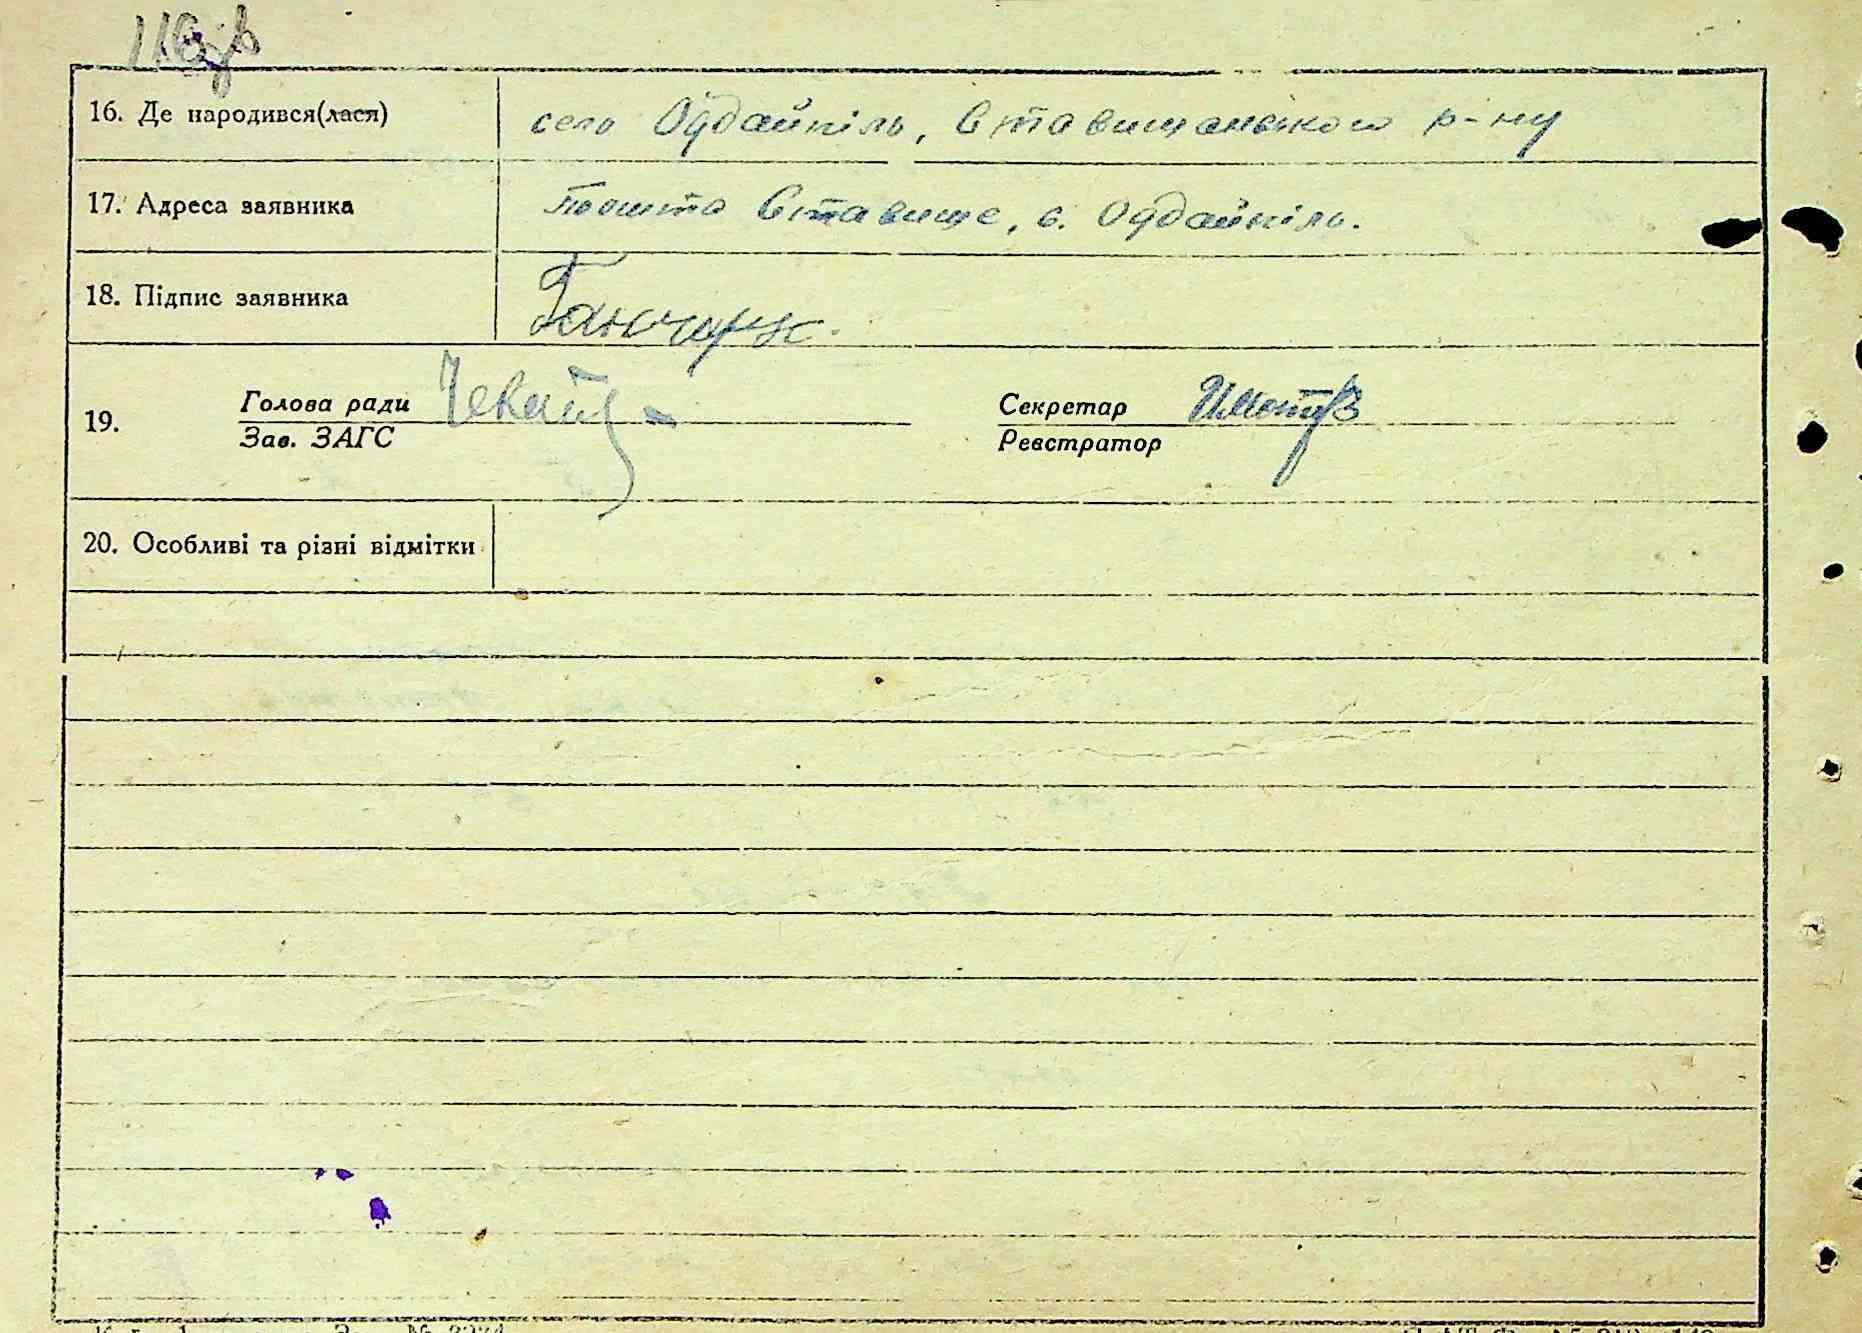 16. Де народився(лася) село Оддайпіль, Ставищанського р-ну
17. Адреса заявника Пошта Ставище, с. Оддайпіль.
18. Підпис заявника Ганчарук.
19. Голова ради Секретар
Зав. ЗАГС Реєстратор
20. Особливі та різні відмітки